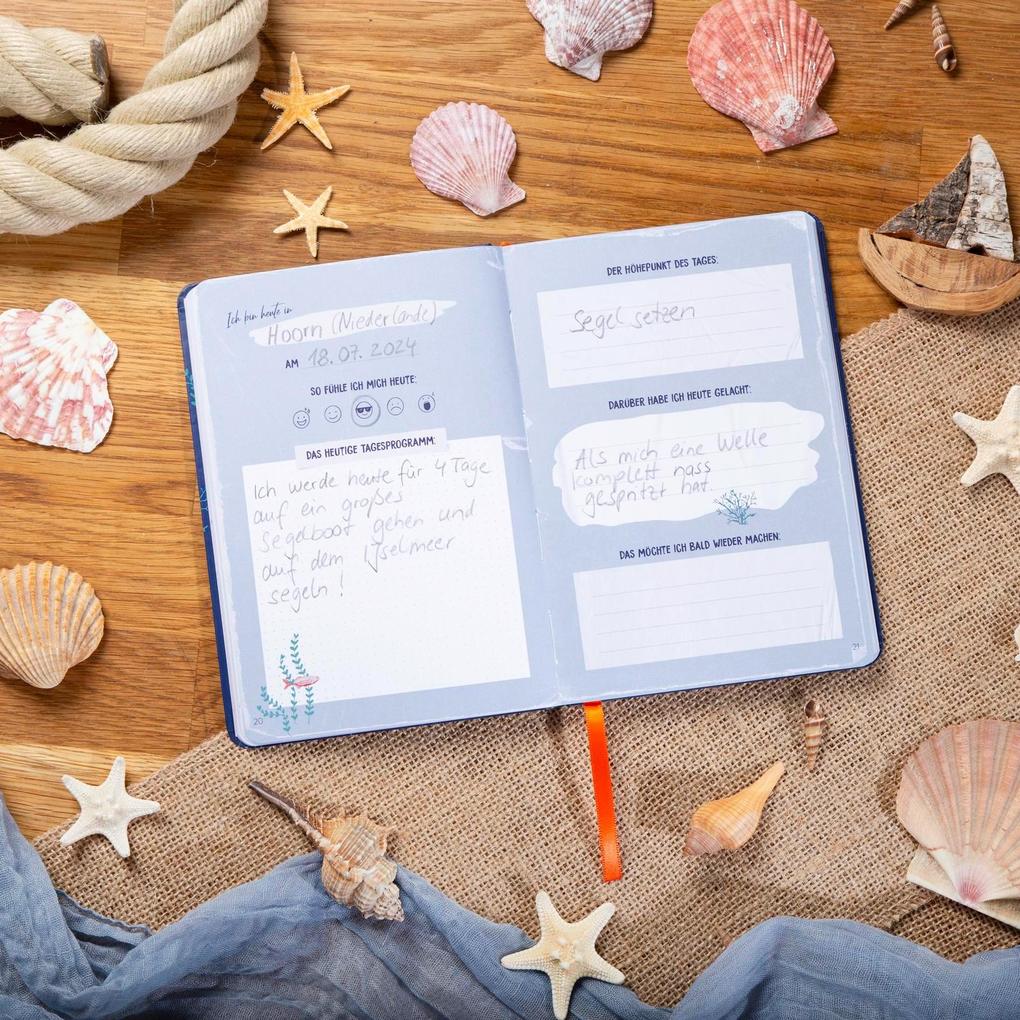 Ich bin heute in
Hoorn (Niederlande)
AM 18.07.2024
SO FÜHLE ICH MICH HEUTE:
DAS HEUTIGE TAGESPROGRAMM:
Ich werde heute für 4 Tage
auf ein großes
Segelboot gehen und
auf dem IJselmeer
segeln!
20
DER HÖHEPUNKT DES TAGES:
Segel setzen
DARÜBER HABE ICH HEUTE GELACHT:
Als mich eine Welle
komplett nass
gespritzt hat.
DAS MÖCHTE ICH BALD WIEDER MACHEN:
21